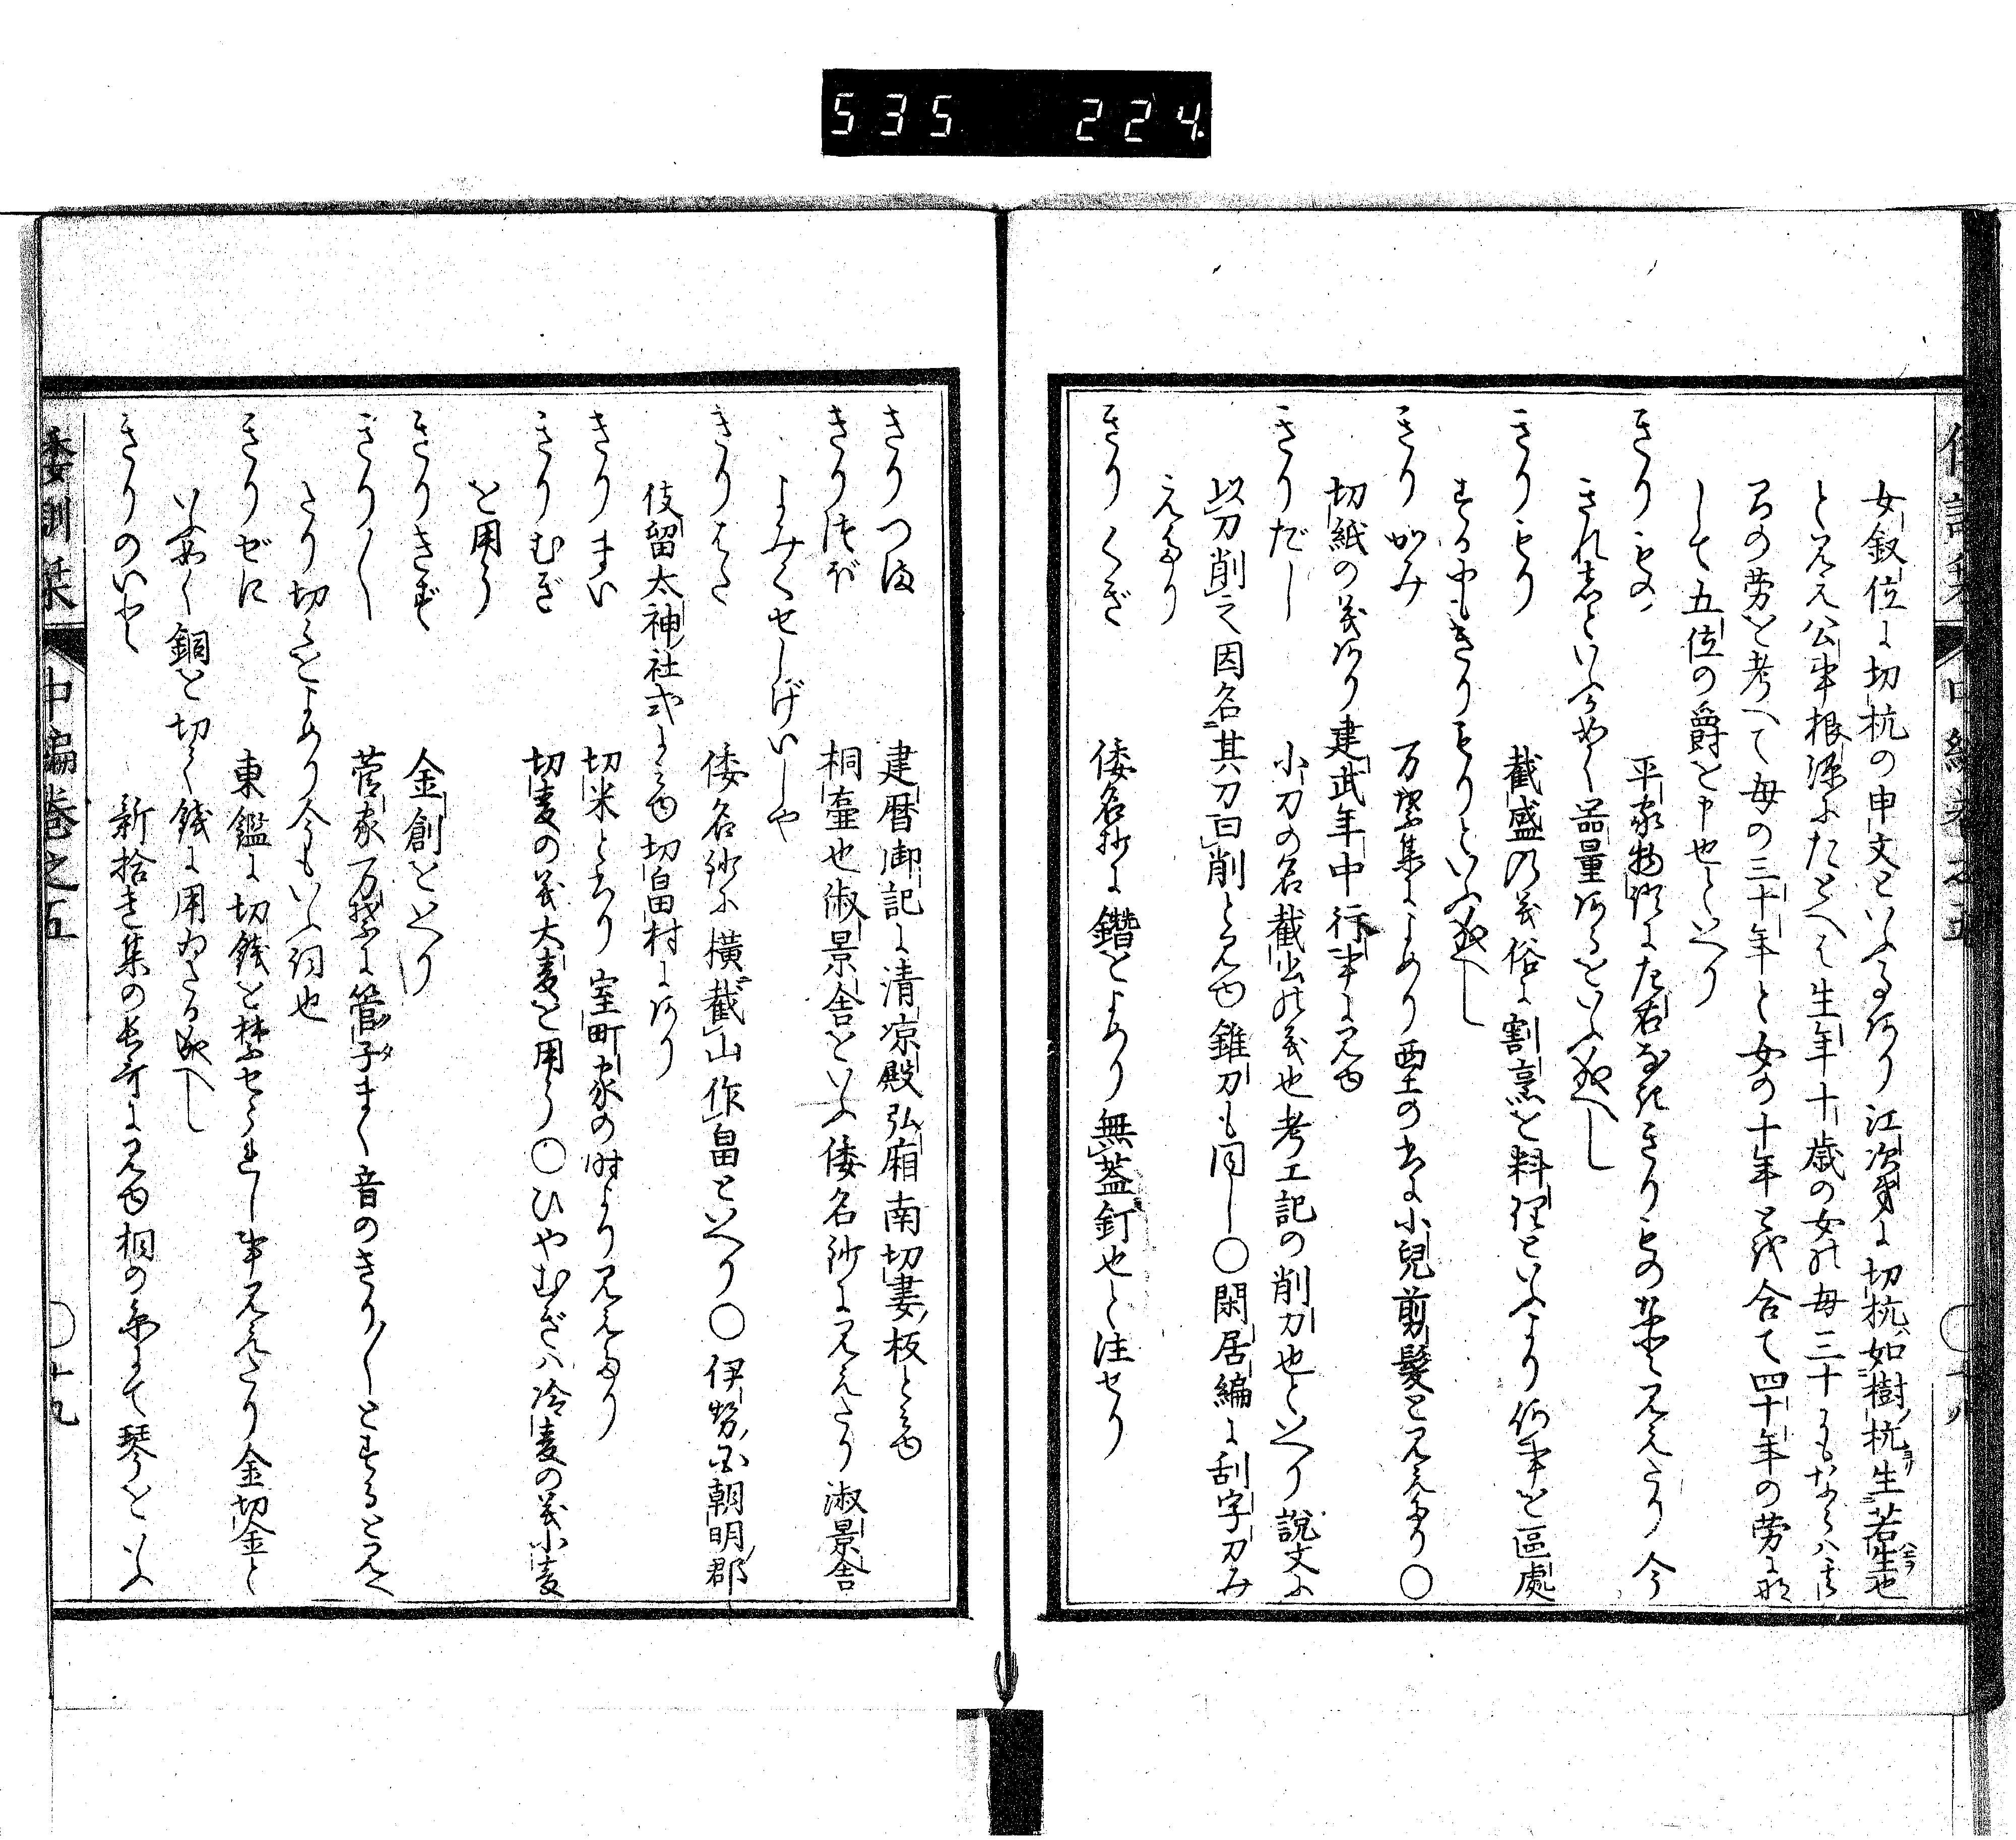 535 224
女叙位に切杭の申文といふ事あり江次第に切杭ハ如樹ノ杭ヨリ生若生也
と見え公事根源にたとへは生年十歳の女の毎三十にもならハ其
の労を考へて毎の三十年と女の十年とを合て四十年の労に准
して五位の爵を申也といへり
きりもの 平家物語に左右なききりもの哉と見えたり今
きれ者といふ如く品量あるをいふ成へし
きりもり 截盛の義俗に割烹を料理といふより何事を區處
する中もきりもりといふ成へし
きりがみ 万葉集によめり西土の書に小兒剪髮と見えたり〇
切紙の義あり建武年中行事に見ゆ
きりだし 小刀の名截出の義也考工記の削刀也といへり説文に
以刀削之因名其刀曰削と見ゆ錐刀も同し〇閑居編に刮字刀み
えたり
きりくぎ 倭名抄に鐕をよめり無蓋釘也と注せり
きりつま 建暦御記に清凉殿弘廂南切妻ノ板と見ゆ
きりつぼ 桐壷也淑景舎をいふ倭名鈔に見えたり淑景舎
よみくせしげいしや
きりはた 倭名鈔に横截山作畠といへり〇伊勢ノ国朝明ノ郡
伎留太神社式に見ゆ切畠村にあり
きりまい 切米とかけり室町家の时より見えたり
きりむぎ 切麦の義大麦を用う〇ひやむぎハ冷麦の義小麦
を用う
きりきず 金創をいへり
きりきり 菅家万葉に管子まく音のきり〳〵とするとみえ
たり切々をよめり今もいふ詞也
きりぜに 東鑑に切銭を禁せられし事見えたり金切金と
いふ如く銅を切て銭に用ゐたる成へし
きりのいと 新拾遺集の長哥に見ゆ桐の糸にて琴をいふ
倭訓栞 中編巻之五 〇十九